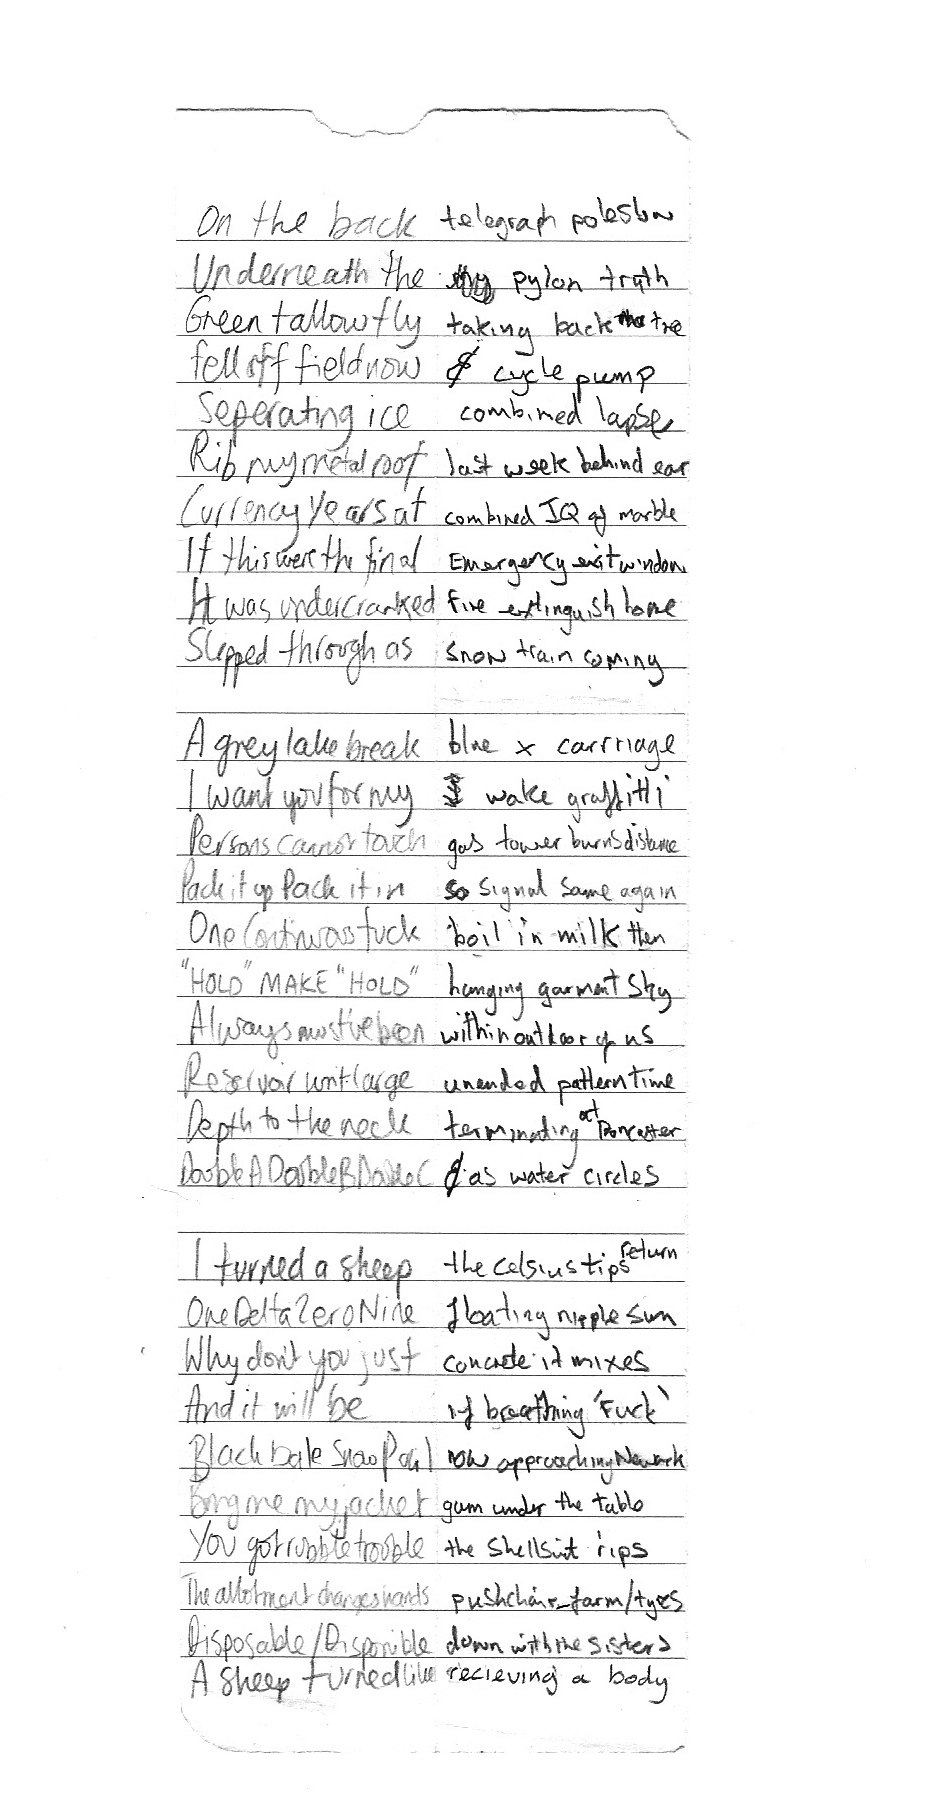 On the back telegraph poleslow
Underneath the pylon truth
Green tallow fly taking back the tree
fell off field now & cycle pump
Seperating ice combined lapse
Rib my metal roof last week behind ear
Currency Years at combined IQ of marble
If this were the final Emergency exit window
It was undercranked fire extinguish home
Slipped through as snow train coming
A grey lake break blue x carrriage
I want you for my wake graffitti
Persons cannot touch gas tower burns distance
Pack it up Pack it in so signal same again
One Contin was fuck boil in milk then
"HOLD" MAKE "HOLD" hanging garment sky
Always must've been within outdoor of us
Reservoir writ large unended pattern time
Depth to the neck terminating at Doncaster
Double A Double B Double C & as water circles
I turned a sheep the celsius tips return
One Delta Zero Nine floating nipple sun
Why don't you just concrete it mixes
And it will be if breathing 'Fuck'
Black bale Snow now approaching Newark
Bring me my jacket gum under the table
You got rubble trouble the shellsuit rips
The allotment changes hands pushchair farm/tyres
Disposable/Disponible down with the sisters
A sheep turned like recieving a body